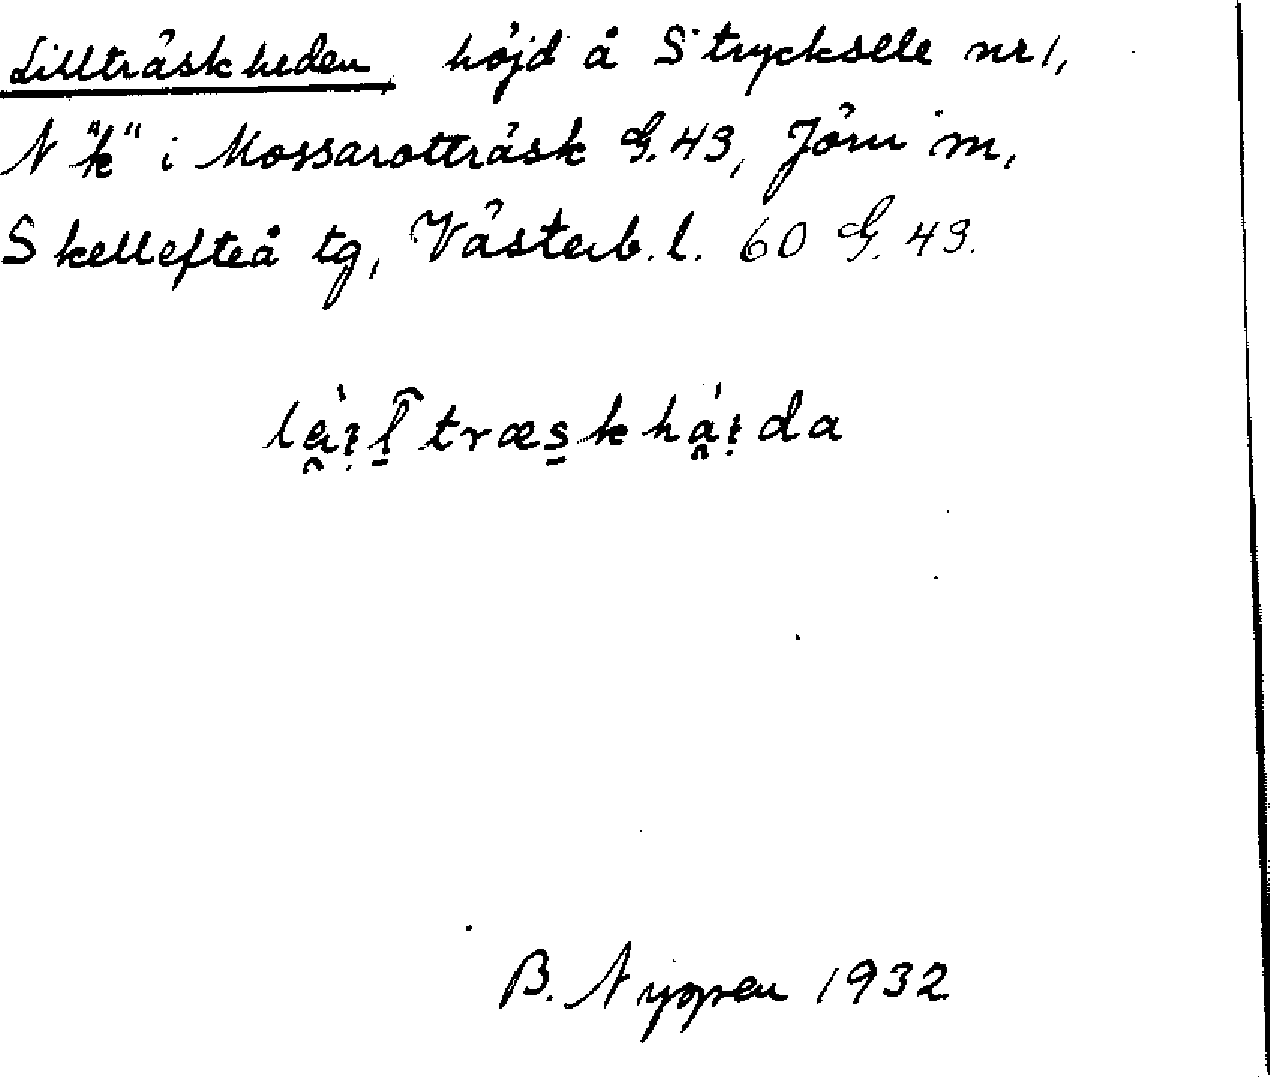 Lillträskheden, höjd å Strycksele nr 1,
N "k" i Mossarotträsk G. 43, Jörn m,
Skellefteå tg, Västerb. l. 60 G. 43.
träskhä̀ıda
B. Nyppen 1932